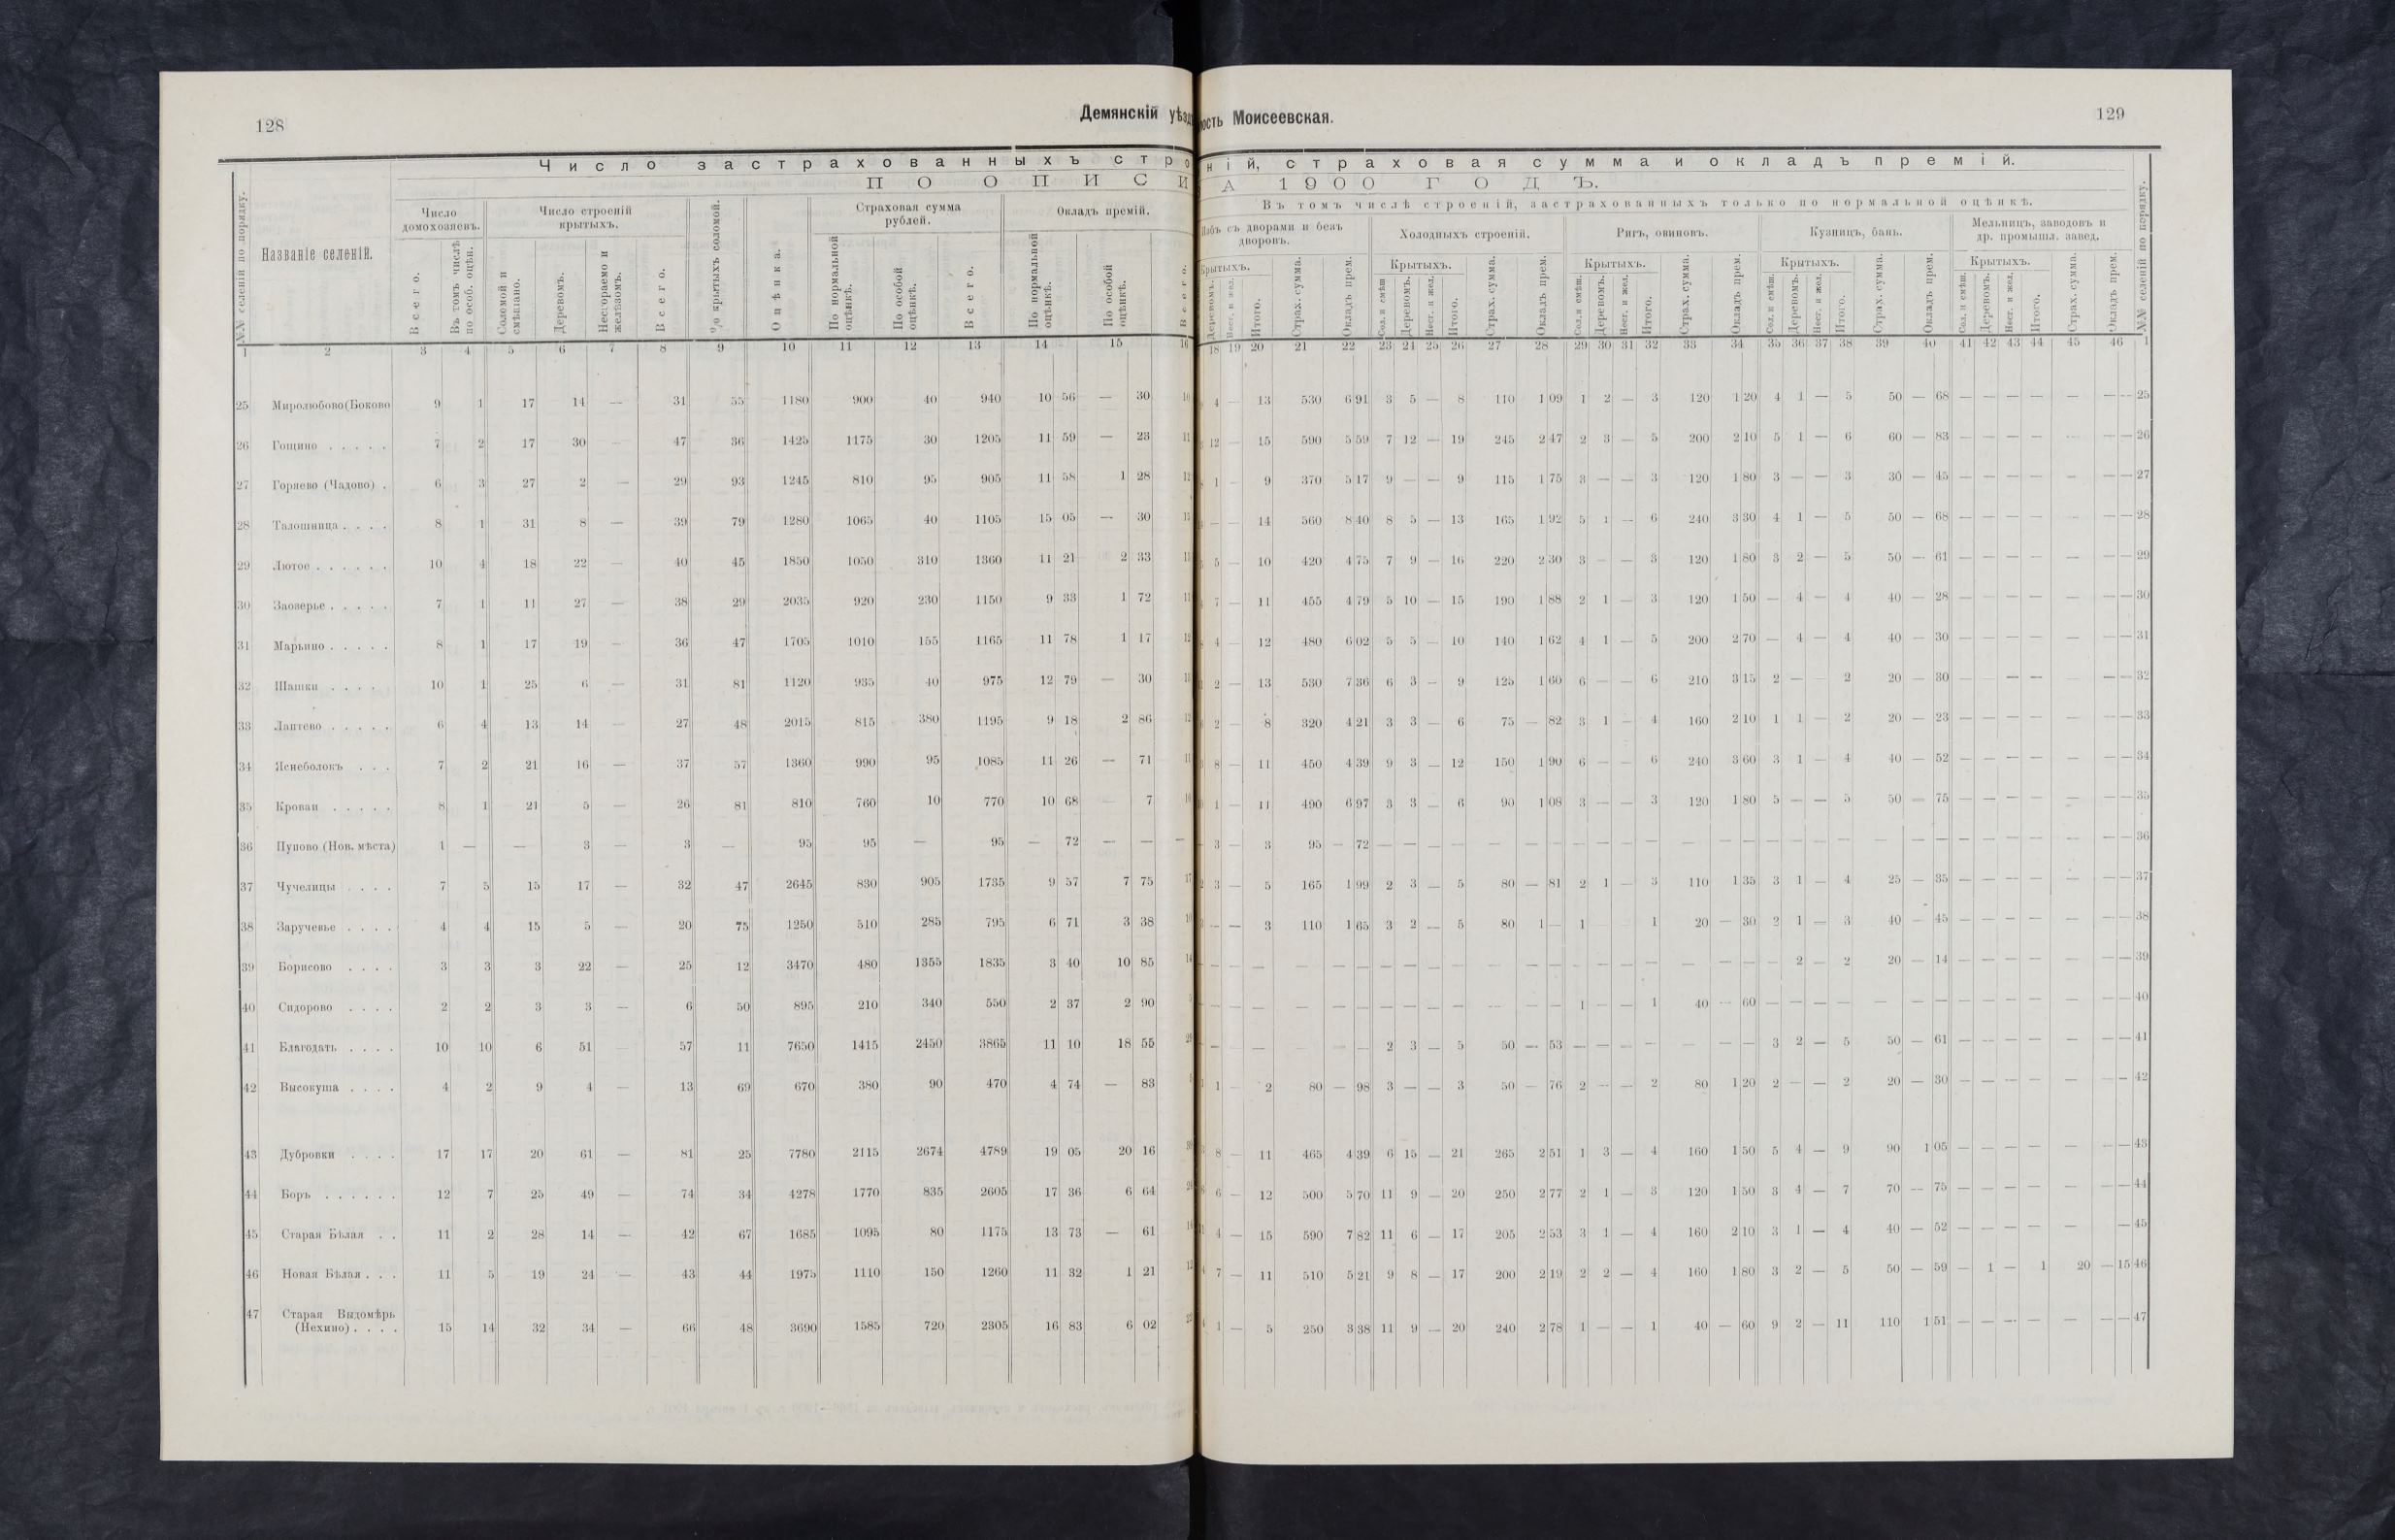 128
Демянскій уѣзд
ость Моисеевская.
129
Число застрахованныхъ стро
ній, страховая сумма и окладъ премій.
ПО ОПИСИ
А 1900 ГОДЪ.
№№ селеній по порядку.
Названіе селеній.
Число домохозяевъ.
Всего.
Въ томъ числѣ по особ. оцѣн.
Число строеній крытыхъ.
Соломой и смѣшано.
Деревомъ.
Несгораемо и желѣзомъ.
Всего.
% крытыхъ соломой.
Оцѣнка.
Страховая сумма рублей.
По нормальной оцѣнкѣ.
По особой оцѣнкѣ.
Всего.
Окладъ премій.
По нормальной оцѣнкѣ.
По особой оцѣнкѣ.
Всего.
Въ томъ числѣ строеній, застрахованныхъ только по нормальной оцѣнкѣ.
Избъ съ дворами и безъ дворовъ.
Крытыхъ.
Деревомъ.
Несг. и жел.
Итого.
Страх. сумма.
Окладъ прем.
Холодныхъ строеній.
Крытыхъ.
Сол. и смѣш.
Деревомъ.
Несг. и жел.
Итого.
Страх. сумма.
Окладъ прем.
Ригъ, овиновъ.
Крытыхъ.
Сол. и смѣш.
Деревомъ.
Несг. и жел.
Итого.
Страх. сумма.
Окладъ прем.
Кузницъ, бань.
Крытыхъ.
Сол. и смѣш.
Деревомъ.
Несг. и жел.
Итого.
Страх. сумма.
Окладъ прем.
Мельницъ, заводовъ и др. промышл. завед.
Крытыхъ.
Сол. и смѣш.
Деревомъ.
Несг. и жел.
Итого.
Страх. сумма.
Окладъ прем.
№№ селеній по порядку.
1 2 3 4 5 6 7 8 9 10 11 12 13 14 15 16 18 19 20 21 22 23 24 25 26 27 28 29 30 31 32 33 34 35 36 37 38 39 40 41 42 43 44 45 46 1
25 Миролюбово (Боково 9 1 17 14 — 31 55 1180 900 40 940 10 56 — 30 4 — 13 530 6 91 3 5 — 8 110 1 09 1 2 — 3 120 1 20 4 1 — 5 50 — 68 — — — — — — — 25
26 Гощино . . . . . 7 2 17 30 — 47 36 1425 1175 30 1205 11 59 — 23 12 — 15 590 5 59 7 12 — 19 245 2 47 2 3 — 5 200 2 10 5 1 — 6 60 — 83 — — — — — — — 26
27 Горяево (Чадово) . 6 3 27 2 — 29 93 1245 810 95 905 11 58 1 28 1 — 9 370 5 17 9 — — 9 115 1 75 3 — — 3 120 1 80 3 — — 3 30 — 45 — — — — — — — 27
28 Талошница . . . . 8 1 31 8 — 39 79 1280 1065 40 1105 15 05 — 30 — — 14 560 8 40 8 5 — 13 165 1 92 5 1 — 6 240 3 30 4 1 — 5 50 — 68 — — — — — — — 28
29 Лютое . . . . . . 10 4 18 22 — 40 45 1850 1050 310 1360 11 21 2 33 5 — 10 420 4 75 7 9 — 16 220 2 30 3 — — 3 120 1 80 3 2 — 5 50 — 61 — — — — — — — 29
30 Заозерье . . . . . 7 1 11 27 — 38 29 2035 920 230 1150 9 33 1 72 7 — 11 455 4 79 5 10 — 15 190 1 88 2 1 — 3 120 1 50 — 4 — 4 40 — 28 — — — — — — — 30
31 Марьино . . . . . 8 1 17 19 — 36 47 1705 1010 155 1165 11 78 1 17 4 — 12 480 6 02 5 5 — 10 140 1 62 4 1 — 5 200 2 70 — 4 — 4 40 — 30 — — — — — — — 31
32 Шашки . . . . 10 1 25 6 — 31 81 1120 935 40 975 12 79 — 30 2 — 13 530 7 36 6 3 — 9 125 1 60 6 — — 6 210 3 15 2 — — 2 20 — 30 — — — — — — — 32
33 Лаптево . . . . . 6 4 13 14 — 27 48 2015 815 380 1195 9 18 2 86 2 — 8 320 4 21 3 3 — 6 75 — 82 3 1 — 4 160 2 10 1 1 — 2 20 — 23 — — — — — — — 33
34 Ясиеболокъ . . . 7 2 21 16 — 37 57 1360 990 95 1085 11 26 — 71 8 — 11 450 4 39 9 3 — 12 150 1 90 6 — — 6 240 3 60 3 1 — 4 40 — 52 — — — — — — — 34
35 Крован . . . . . 8 1 21 5 — 26 81 810 760 10 770 10 68 — 7 1 — 11 490 6 97 3 3 — 6 90 1 08 3 — — 3 120 1 80 5 — — 5 50 — 75 — — — — — — — 35
36 Пупово (Нов. мѣста) 1 — — 3 — 3 — 95 95 — 95 — 72 — — — 3 — 3 95 — 72 — — — — — — — — — — — — — — — — — — — — — — — — — — 36
37 Чучелицы . . . . 7 5 15 17 — 32 47 2645 830 905 1735 9 57 7 75 3 — 5 165 1 99 2 3 — 5 80 — 81 2 1 — 3 110 1 35 3 1 — 4 25 — 35 — — — — — — — 37
38 Заручевье . . . . 4 4 15 5 — 20 75 1250 510 285 795 6 71 3 38 — — 3 110 1 65 3 2 — 5 80 1 — 1 1 20 — 30 2 1 — 3 40 — 45 — — — — — — — 38
39 Борисово . . . . 3 3 3 22 — 25 12 3470 480 1355 1835 3 40 10 85 — — — — — — — — — — — — — — — — — — 2 — 2 20 — 14 — — — — — — — 39
40 Сидорово . . . . 2 2 3 3 — 6 50 895 210 340 550 2 37 2 90 — — — — — — — — — — — 1 — — 1 40 — 60 — — — — — — — — — — — — — — 40
41 Благодать . . . . 10 10 6 51 57 11 7650 1415 2450 3865 11 10 18 55 — — — — — 2 3 — 5 50 — 53 — — — — — — — 3 2 — 5 50 — 61 — — — — — — — 41
42 Высокуша . . . . 4 2 9 4 — 13 69 670 380 90 470 4 74 — 83 1 — 2 80 — 98 3 — — 3 50 — 76 2 — — 2 80 1 20 2 — — 2 20 — 30 — — — — — — — 42
43 Дубровки . . . . 17 17 20 61 — 81 25 7780 2115 2674 4789 19 05 20 16 8 — 11 465 4 39 6 15 — 21 265 2 51 1 3 — 4 160 1 50 5 4 — 9 90 1 05 — — — — — — — 43
44 Боръ . . . . . . 12 7 25 49 — 74 34 4278 1770 835 2605 17 36 6 64 6 — 12 500 5 70 11 9 — 20 250 2 77 2 1 — 3 120 1 50 3 4 — 7 70 — 75 — — — — — — — 44
45 Старая Бѣлая . . 11 2 28 14 — 42 67 1685 1095 80 1175 13 73 — 61 4 — 15 590 7 82 11 6 — 17 205 2 53 3 1 — 4 160 2 10 3 1 — 4 40 — 52 — — — — — — 45
46 Новая Бѣлая . . . 11 5 19 24 — 43 44 1975 1110 150 1260 11 32 1 21 7 — 11 510 5 21 9 8 — 17 200 2 19 2 2 — 4 160 1 80 3 2 — 5 50 — 59 — 1 — 1 20 — 15 46
47 Старая Выдомѣрь
(Нехино) . . . . 15 14 32 34 — 66 48 3690 1585 720 2305 16 83 6 02 1 — 5 250 3 38 11 9 — 20 240 2 78 1 — — 1 40 — 60 9 2 — 11 110 1 51 — — — — — — — 47